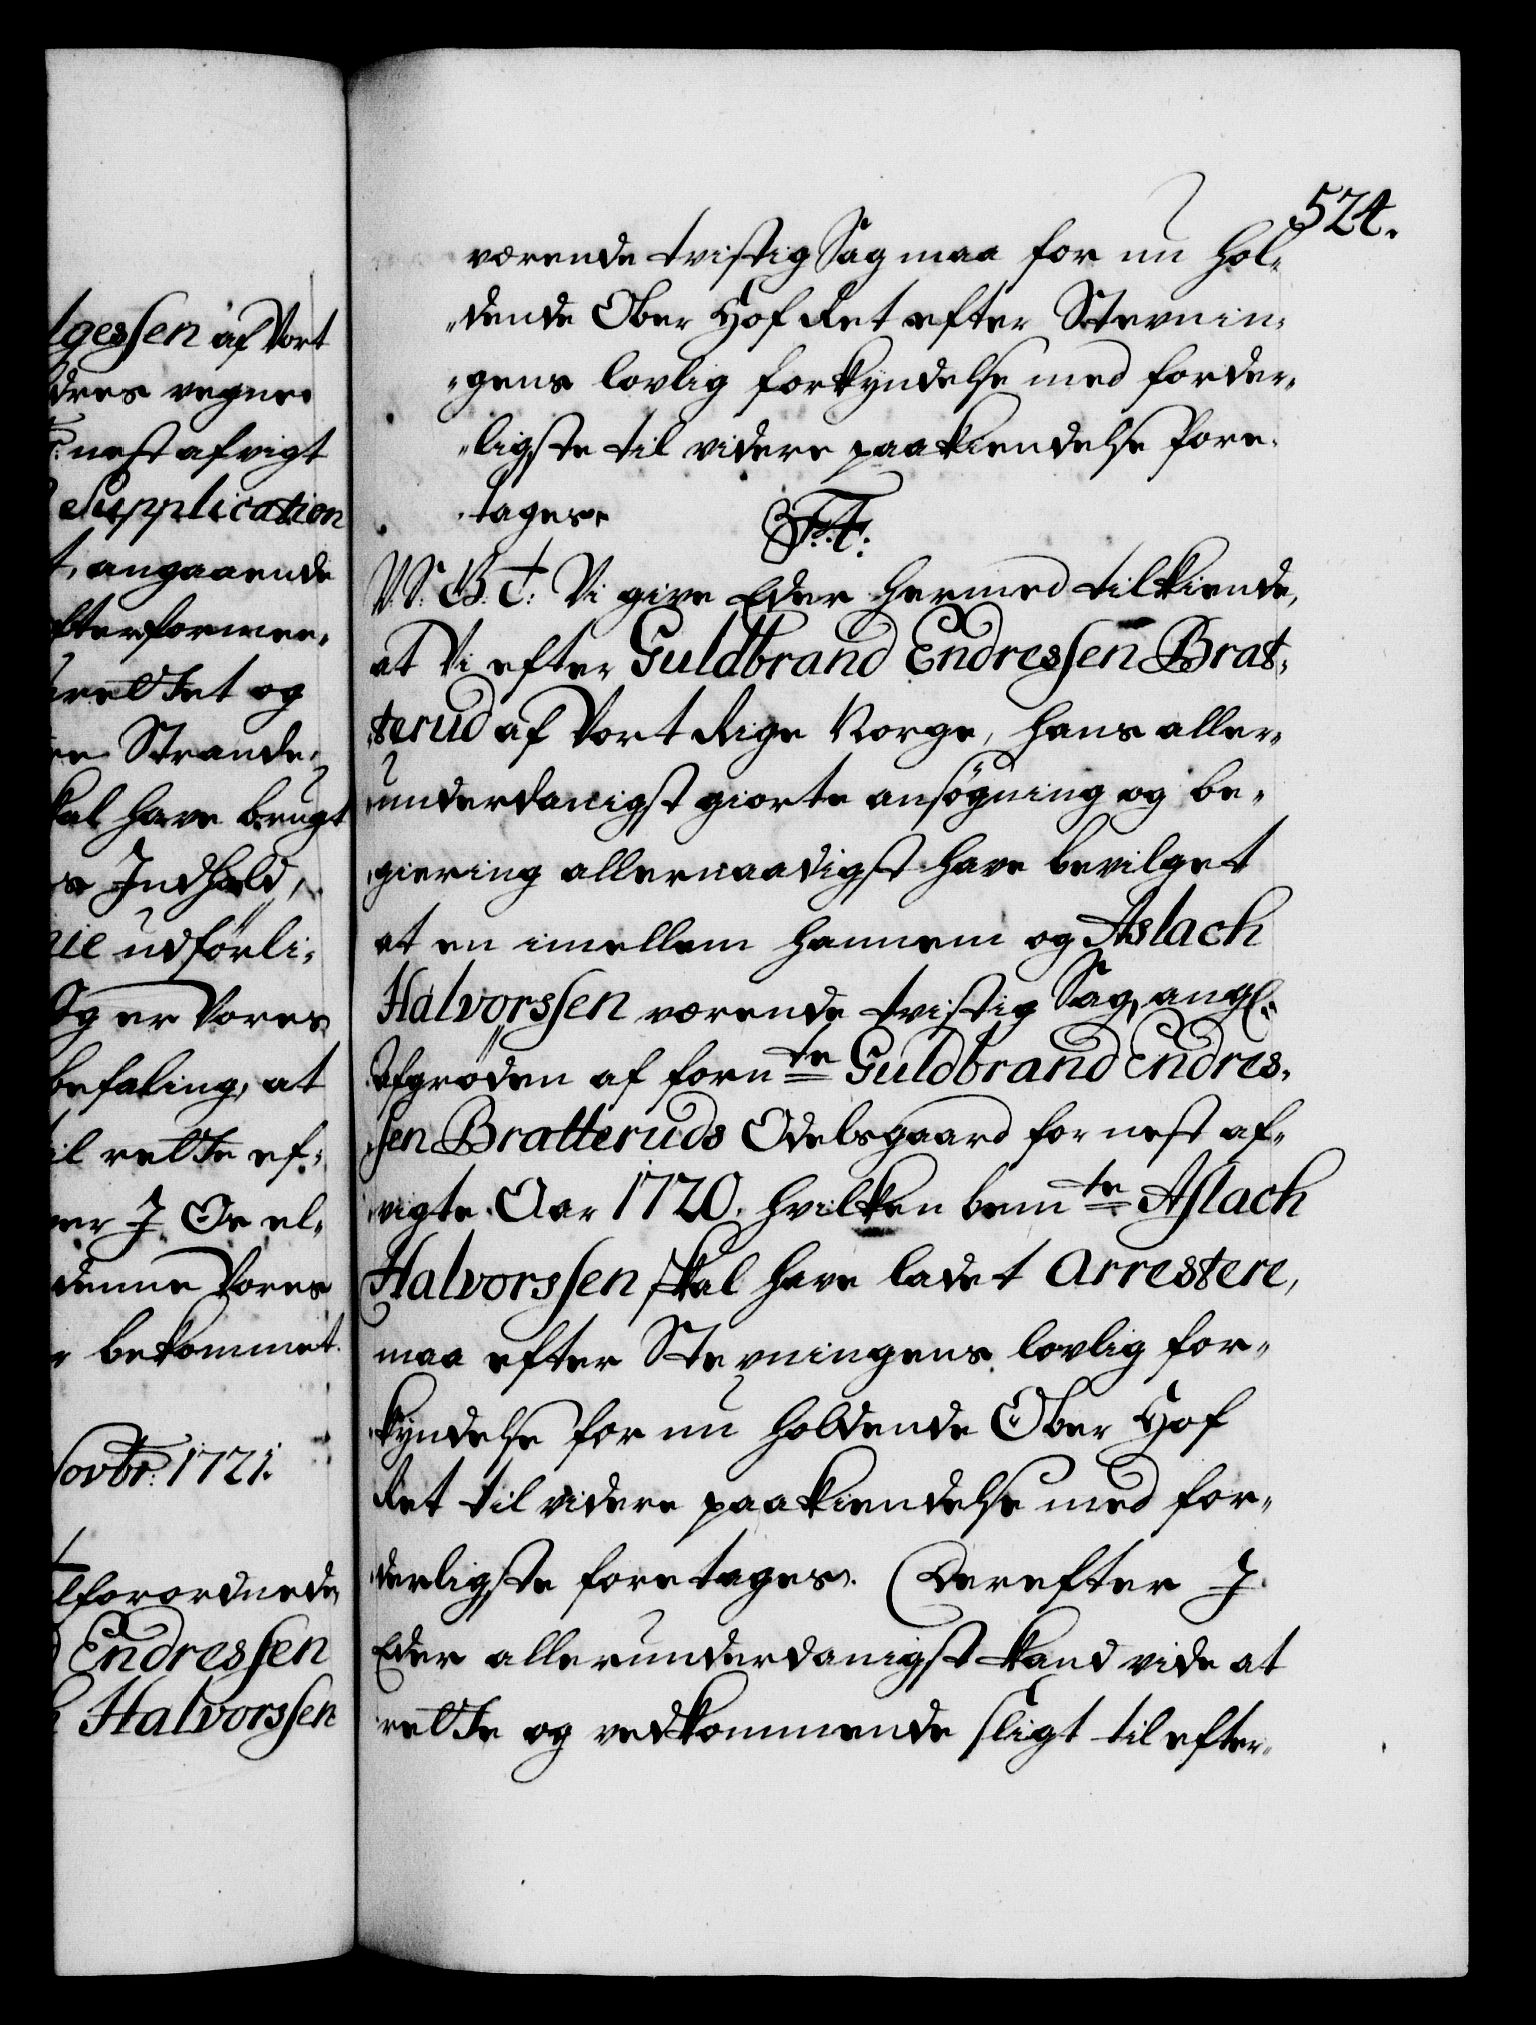 lgessen af Vort
dres vegne
nest afvigt
Supplication
t, angaaende
efterformee,
rettet og
re Strande,
kal have brugt
s Indhold,
nie udförli,
Og er Vores
befaling, at
il rette ef,
ver J. Oe el,
denne Vores
r bekommet.
Novbr: 1721.
lforordnede
Endressen
Halvorssen
524.
værende tvistig Sag maa for nu hol,
,,dende Ober Hof Ret efter Stevnin,
,,gens lovlig forkyndelse med forder,
,,ligste til videre paakiendelse fore,
tages.
F. 4.
V. S. G. T. Vi give Eder hermed tilkiende,
at Vi efter Guldbrand Endressen Brat,
terud af Vort Rige Norge, hans aller,
underdanigst giorte ansögning og be,
giering allernaadigst have bevilget
at en imellem hannem og Aslach
Halvorssen værende tvistig Sag, angl:
Afgröden af fornte Guldbrand Endres,
sen Bratteruds Odelsgaard for nest af,
vigte Aar 1720. hvilken bemte Aslach
Halvorssen skal have ladet Arrestere,
maa efter Stevningens lovlig for,
kyndelse for nu holdende Ober Hof
Ret til videre paakiendelse med for,
derligste foretages. Derefter J
Eder allerunderdanigst kand vide at
rette og vedkommende sligt til efter,